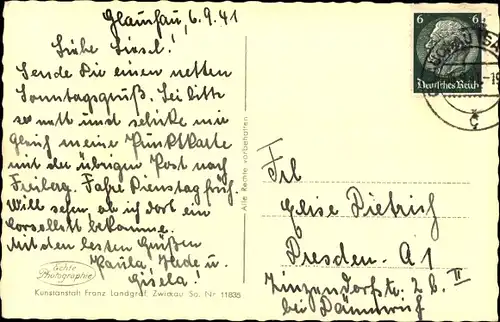 Glauchau, 6.9.41
Liebe Liesel!
Sende Dir einen netten
Sonntagsgruß. Sei bitte
so nett und schicke mir
gleich meine Punktkarte
mit der übrigen Post nach
Freiberg. Fahre Dienstag früh.
Will sehen, ob ich dort ein
Corselett bekomme.
Mit den besten Grüßen
Paula, Hede u.
Gisela!
Echte
Photographie
Kunstanstalt Franz Landgraf, Zwickau Sa. Nr 11835
Alle Rechte vorbehalten
6 6
Deutsches Reich
Frl
Elise Dietrich
Dresden-A1
Zinzendorfstr. 2b II
bei